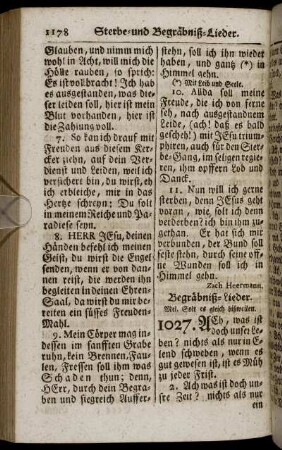 1178 Sterbe- und Begräbniß-Lieder.
Glauben, und nimm mich
wohl in Acht, will mich die
Hölle rauben, so sprich:
Es ist vollbracht! Ich hab
es ausgestanden, was die-
ser leiden soll, hier ist mein
Blut vorhanden, hier ist
die Zahlung voll.
7. So kan ich drauf mit
Freuden aus diesem Ker-
cker ziehn, auf dein Ver-
dienst und Leiden, weil ich
versichert bin, du wirst, eh
ich erbleiche, mir in das
Hertz schreyn: Du solt
in meinem Reiche und Pa-
radiese seyn.
8. HERR JEsu, deinen
Händen befehl ich meinen
Geist, du wirst die Engel
senden, wenn er von dan-
nen reist, die werden ihn
begleiten in deinen Ehren-
Saal, da wirst du mir be-
reiten ein süsses Freuden-
Mahl.
9. Mein Cörper mag in-
dessen im sanfften Grabe
ruhn, kein Brennen, Fau-
len, Fressen soll ihm was
Schaden thun; denn,
HErr, durch dein Begra-
ben und siegreich Auffer-
stehn, soll ich ihn wieder
haben, und gantz (*) in
Himmel gehn.
(*) Mit Leib und Seele.
10. Allda soll meine
Freude, die ich von ferne
seh, nach ausgestandnem
Leide, (ach! daß es bald
gescheh!) mit JEsu trium-
phiren, auch für den Ster-
be-Gang, im seligen regie-
ren, ihm opffern Lob und
Danck.
11. Nun will ich gerne
sterben, denn JEsus geht
voran, wie solt ich denn
verderben? ich bin ihm zu-
gethan. Er hat sich mir
verbunden, der Bund soll
feste stehn, durch seine off-
ne Wunden soll ich in
Himmel gehn.
Zach Heermann.
Begräbniß-Lieder.
Mel. Solt es gleich bisweilen.
1027. ACh, was ist
doch unser Le-
ben? nichts als nur in E-
lend schweben, wenn es
gut gewesen ist, ist es Müh
zu jeder Frist.
2. Ach was ist doch un-
sre Zeit? nichts als nur
ein